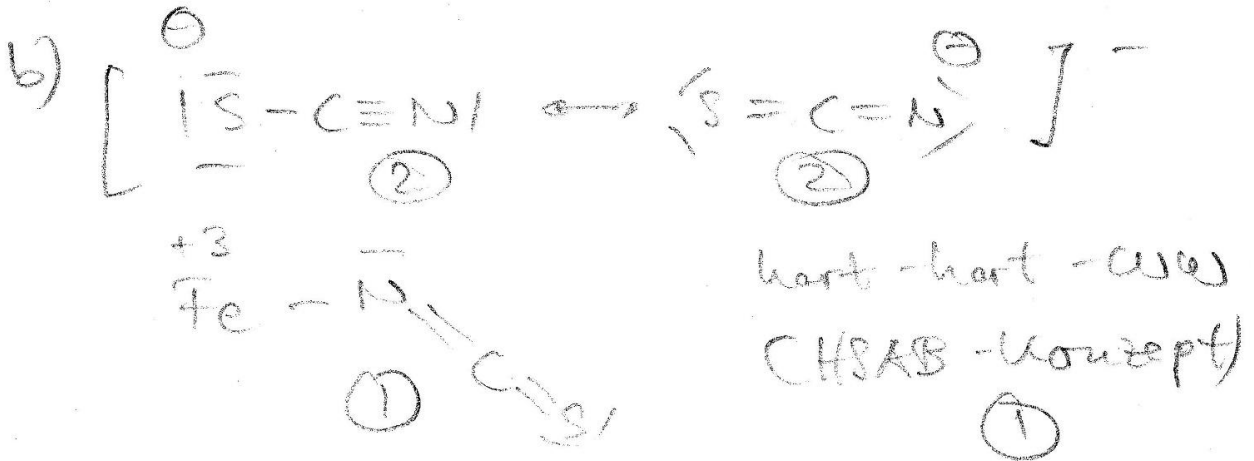 b) [ ⊖ |S̲̅-C≡N| ↔ S=C=N ⊖ ]⁻
② ②
+3
Fe - N̅=C=S hart-hart-WW
① (HSAB-Konzept)
①